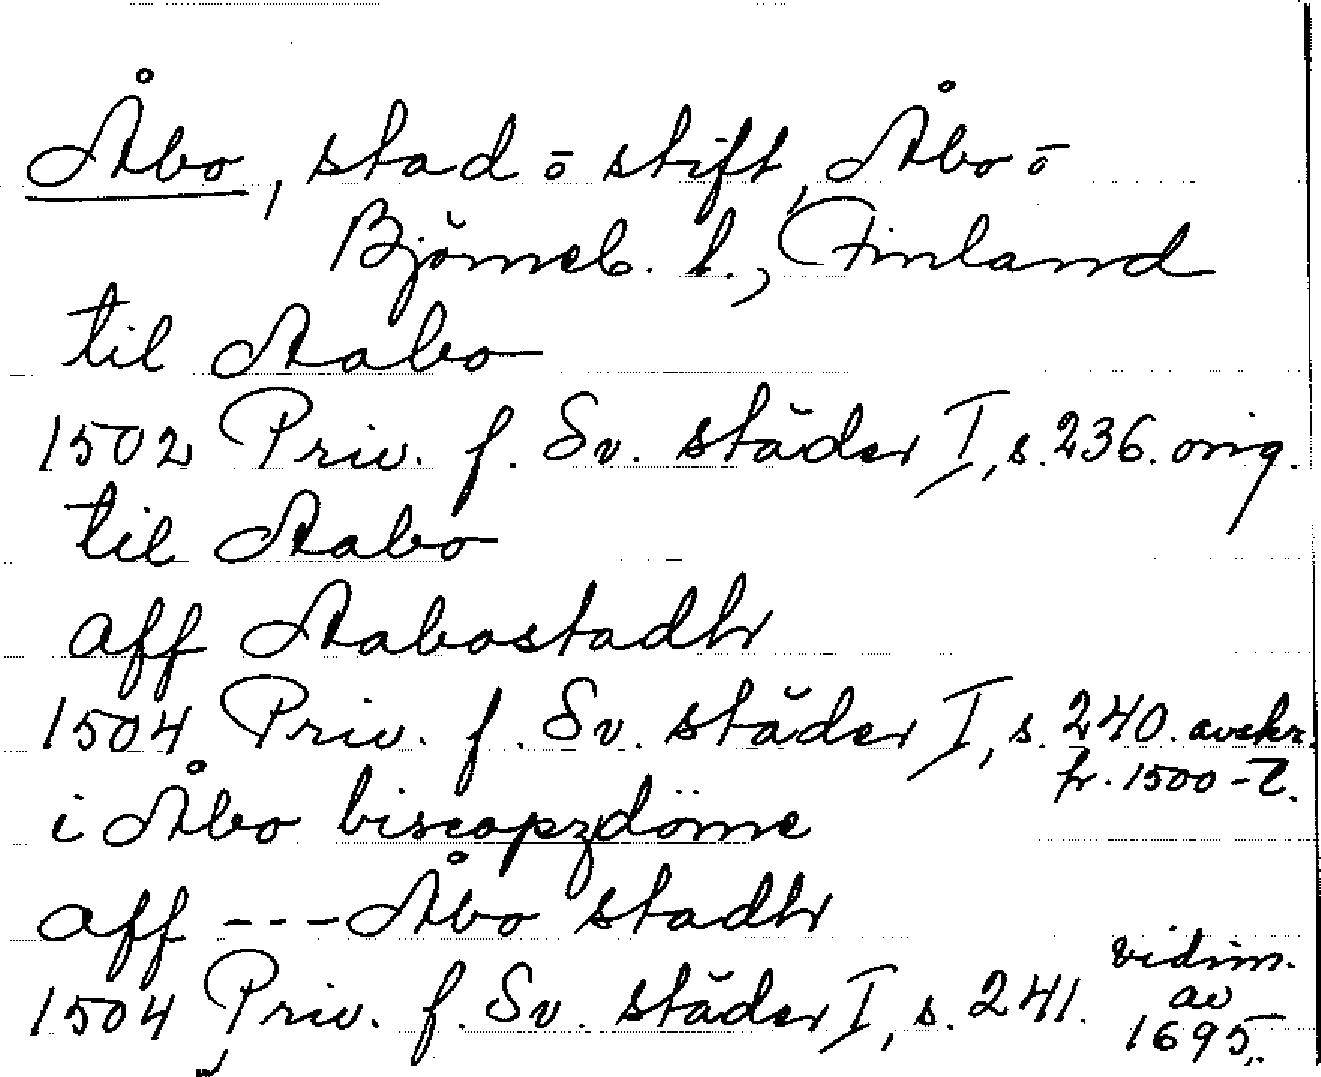 Åbo, stad o stift, Åbo o
Björneb. l., Finland
til Aabo
1502 Priv. f. Sv. städer I, s. 236. orig.
til Aabo
aff Aabostadh
1504 Priv. f. Sv. städer I, s. 240. avskr.
fr. 1500-t.
i Åbo biscopzdöme
aff --- Åbo stadh
1504 Priv. f. Sv. städer I, s. 241. vidim.
av
1695.